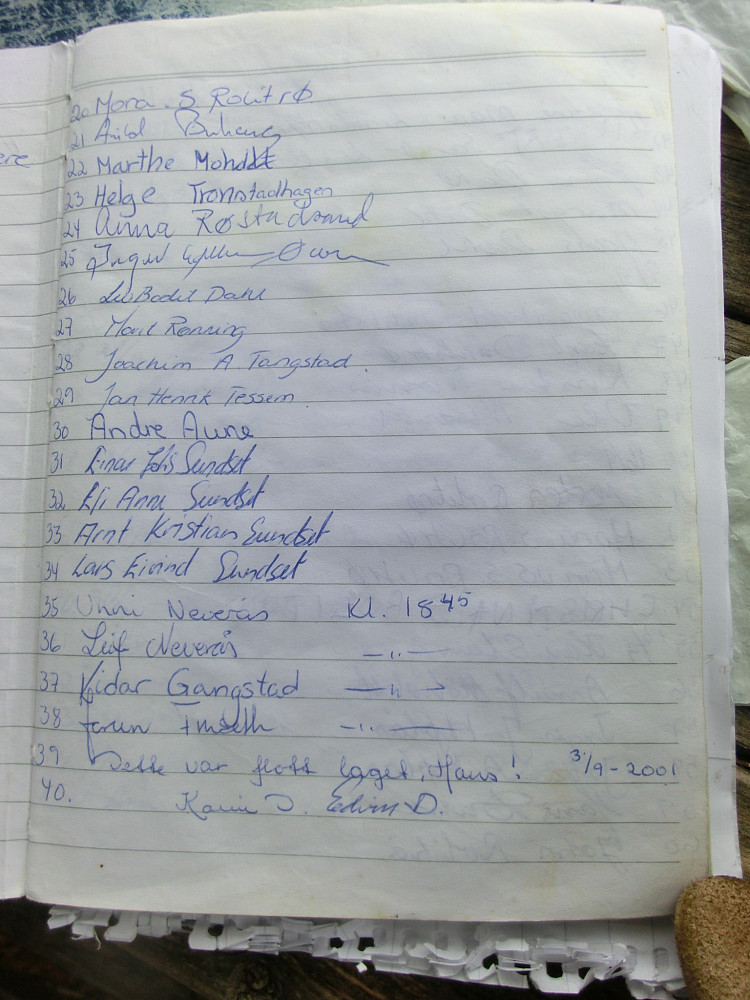 ere
20 Mona S. Rolitrø
21 Arild
22 Marthe
23 Helge Tronstadhagen
24 Anna Røstadsand
25
26 Liv Bodil Dahl
27 Marit Rønning
28 Joachim A Tangstad.
29 Jan Henrik Tessem
30 Andre Aune
31 Einar Sundset
32 Eli Anne Sundset
33 Arnt Kristian Sundset
34 Lars Eivind Sundset
35 Unni Neverås Kl. 18 45
36 Leif Neverås —"—
37 Vidar Gangstad —"—
38 Jorun Imseth —"—
39 Dette var flott laget, Hans! 3/9-2001
40. Karin D. Edvin D.